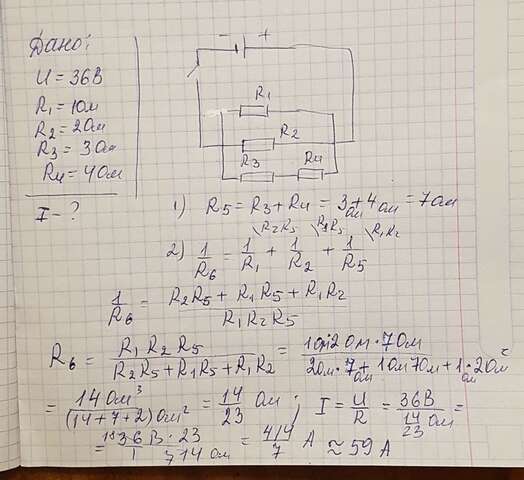 Дано:
U = 36В
R₁ = 1Ом
R₂ = 2Ом
R₃ = 3Ом
R₄ = 4Ом
I - ?
- +
R₁
R₂
R₃ R₄
1) R₅ = R₃ + R₄ = 3 Ом + 4 Ом = 7 Ом
\R₂R₅ \R₁R₅ \R₁R₂
2) 1/R₆ = 1/R₁ + 1/R₂ + 1/R₅
1/R₆ = (R₂R₅ + R₁R₅ + R₁R₂)/(R₁R₂R₅)
R₆ = (R₁R₂R₅)/(R₂R₅ + R₁R₅ + R₁R₂) = (1Ом·2Ом·7Ом)/(2Ом·7Ом + 1Ом7Ом + 1Ом·2Ом)
= 14Ом³/((14+7+2)Ом²) = 14/23 Ом; I = U/R = 36В/(14/23 Ом) =
= (36 В · 23)/(1 · 14 Ом) = 414/7 А ≈ 59 А